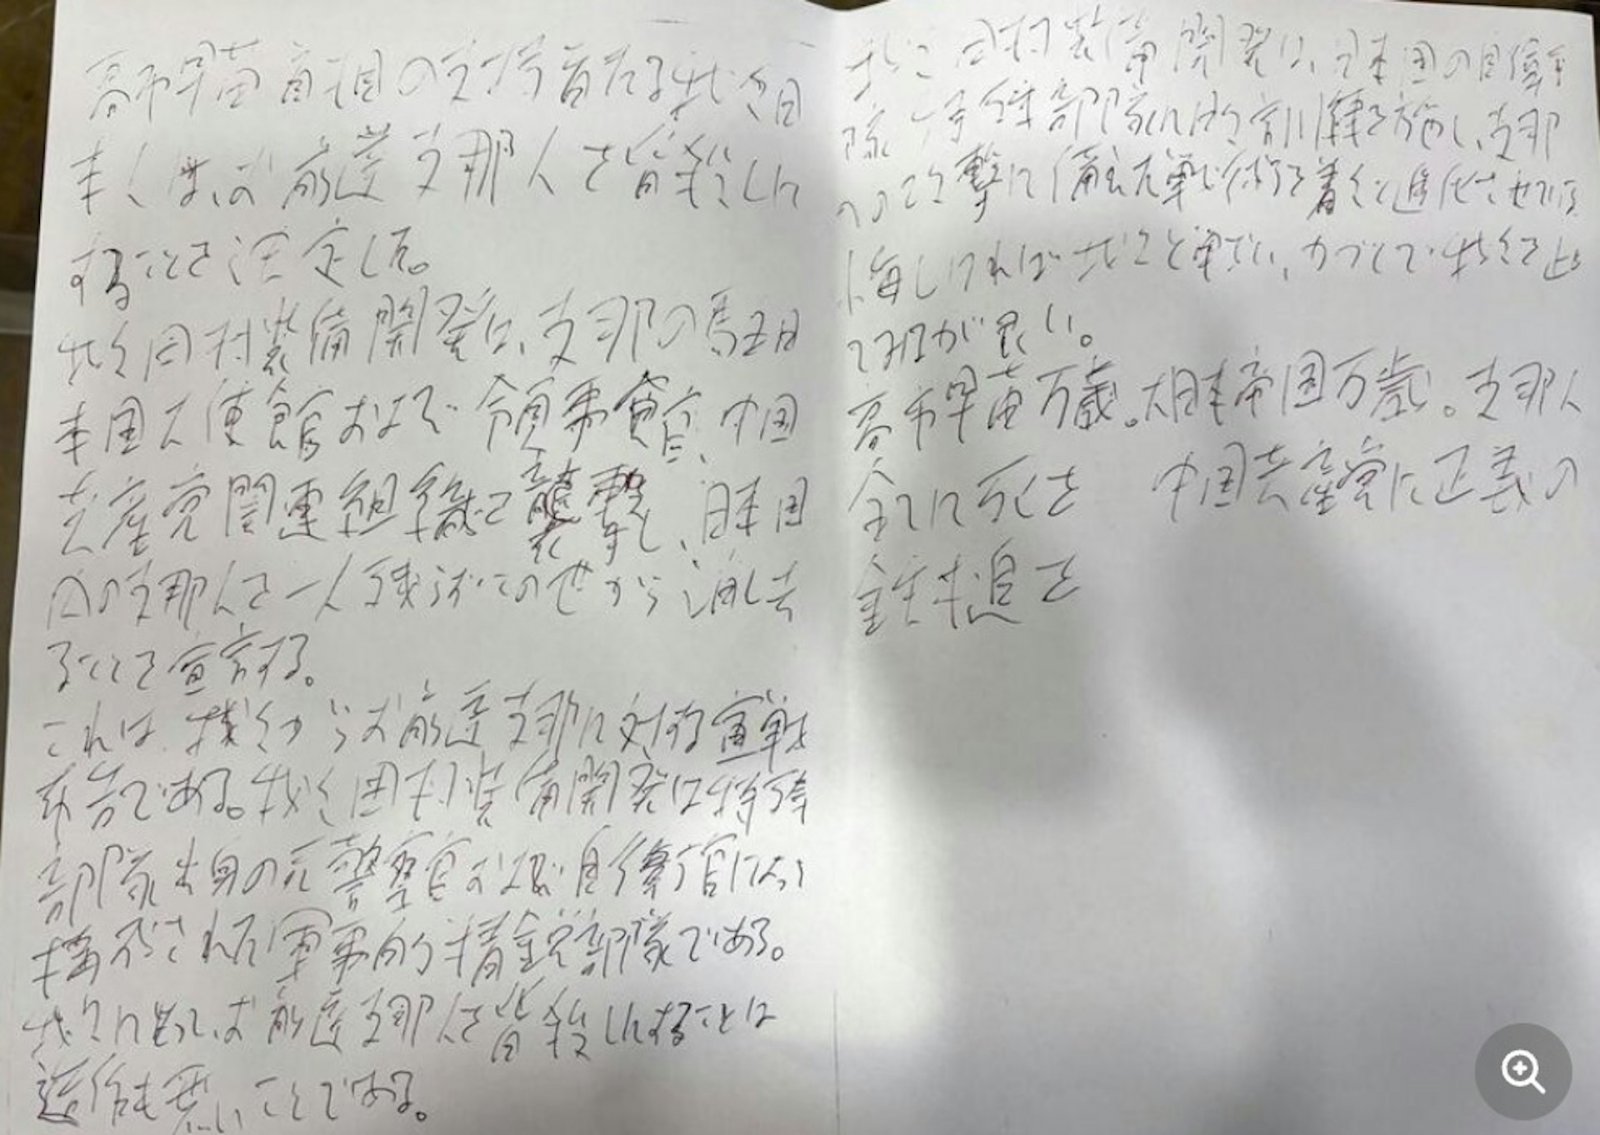 高市早苗首相の支持者たる我々日
本人は、お前達支那人を皆殺しに
することを決定した。
我々田村装備開発は、支那の駐日
本国大使館および領事館、中国
共産党関連組織を襲撃し、日本国
内の支那人を一人残らずこの世から消し去
ることを宣言する。
これは、我々からお前達支那に対する宣戦
布告である。我々田村装備開発は特殊
部隊出身の元警察官および自衛官によって
構成された軍事的精鋭部隊である。
我々にとって、お前達支那人を皆殺しにすることは
造作も無いことである。
我々田村装備開発は、日本国の自衛
隊特殊部隊に訓練を施し、支那
への攻撃に備えた戦術を着々と進化させている
悔しければ我々と戦い、力づくで我々を止め
てみるが良い。
高市早苗万歳。大日本帝国万歳。支那人
全てに死を　中国共産党に正義の
鉄槌を